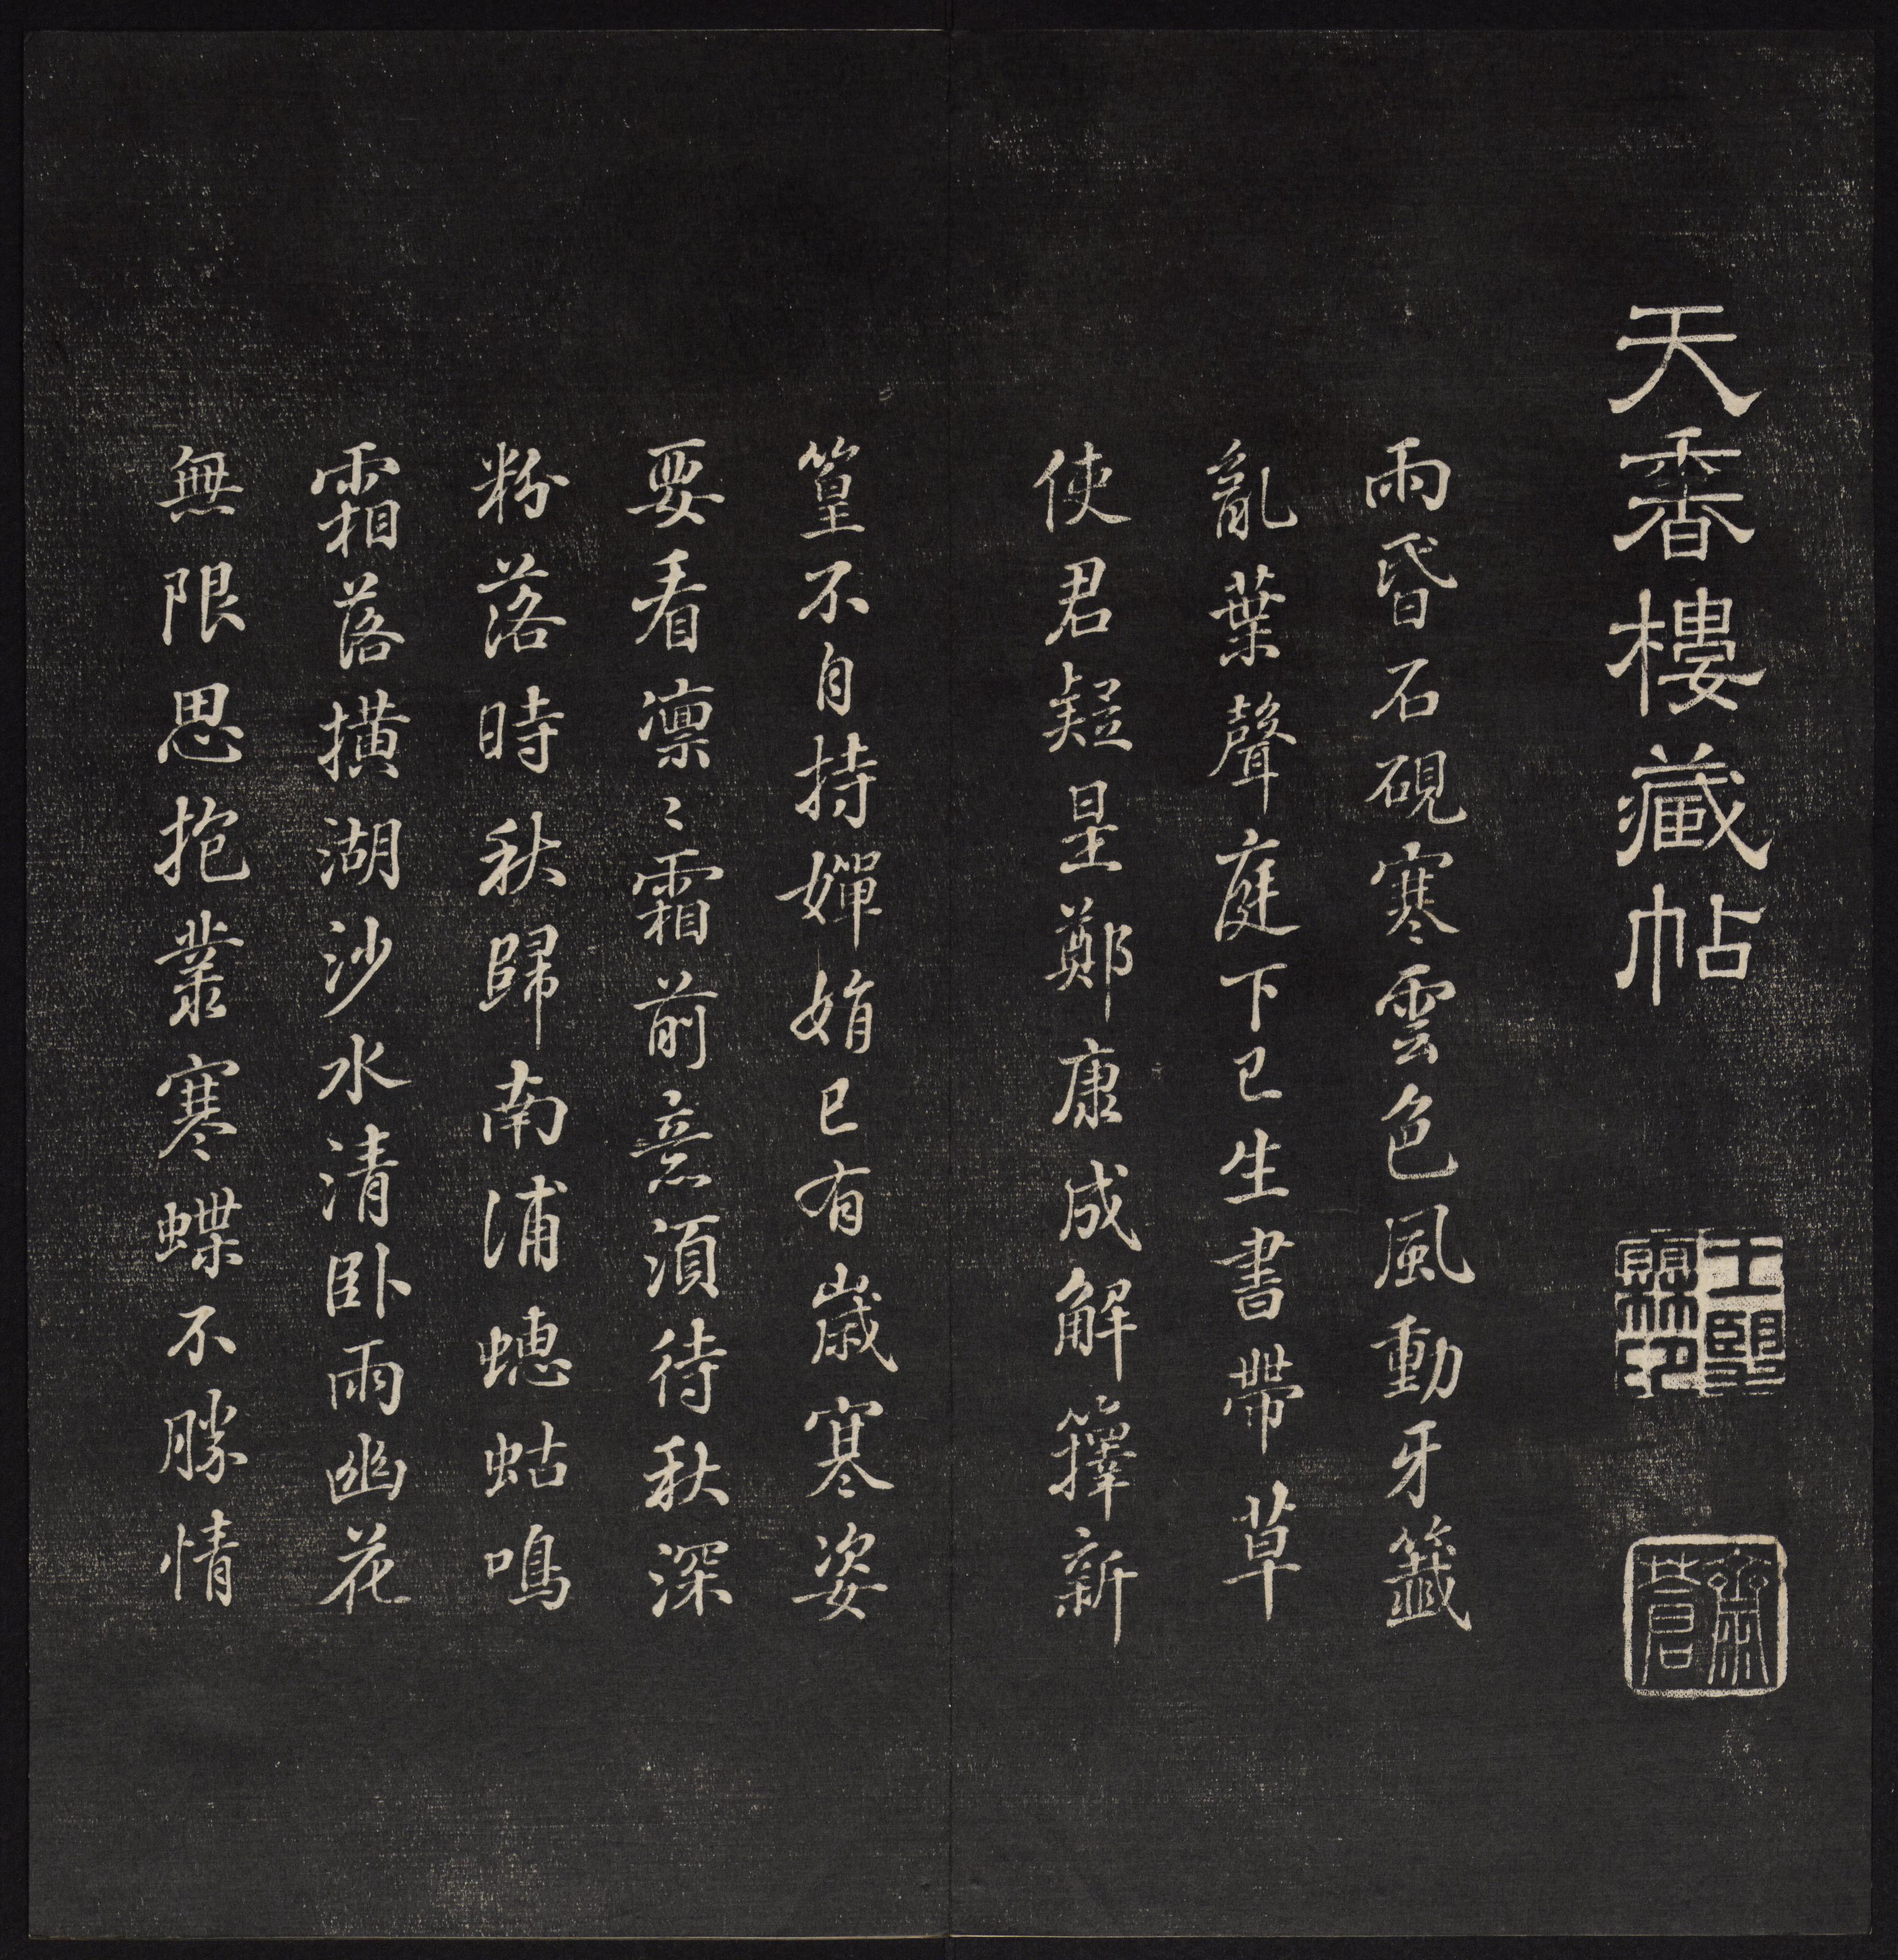 天香樓藏帖
齋蒼
雨昏石硯寒雲色風動牙籤
亂葉聲庭下已生書帶草
使君疑是鄭康成解籜新
篁不自持嬋娟已有歲寒姿
要看凜〻霜前意須待秋深
粉落時秋歸南浦蟪蛄鳴
霜落橫湖沙水清卧雨幽花
無限思抱叢寒蝶不勝情